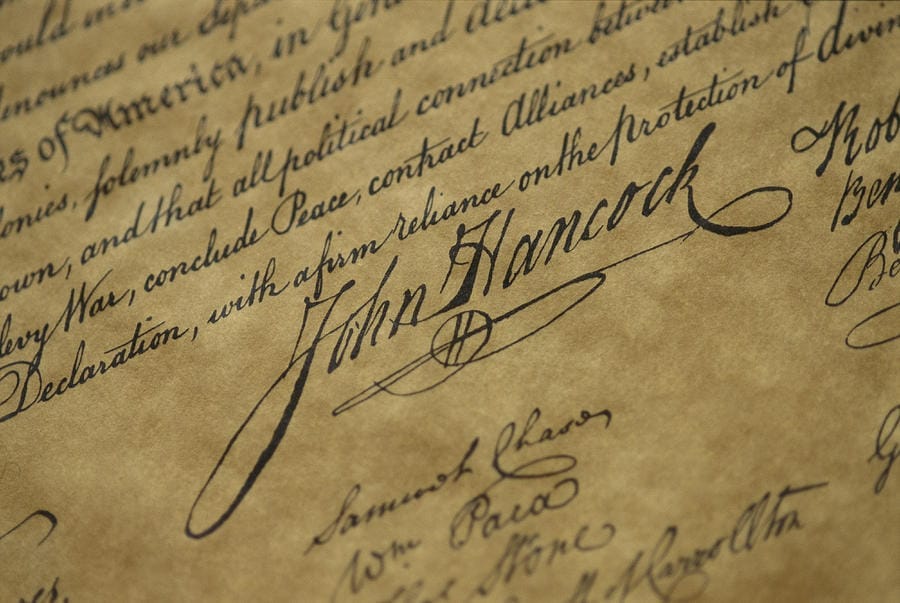 denounces our
rs of America, in
lonies, solemnly publish and
own, and that all political connection between
levy War, conclude Peace, contract Alliances, establish
Declaration, with a firm reliance on the protection of divine
John Hancock
Rob
Ben
Be
Samuel Chase
Wm Paca
Stone
Carrollton
G